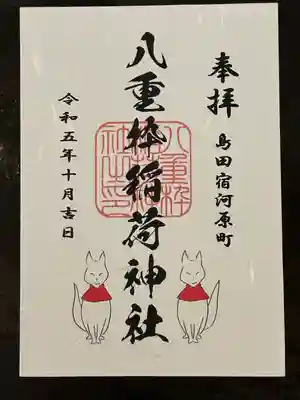 奉拝
島田宿河原町
八重枠稲荷神社
八重枠
稲荷神
社之印
令和五年十月吉日